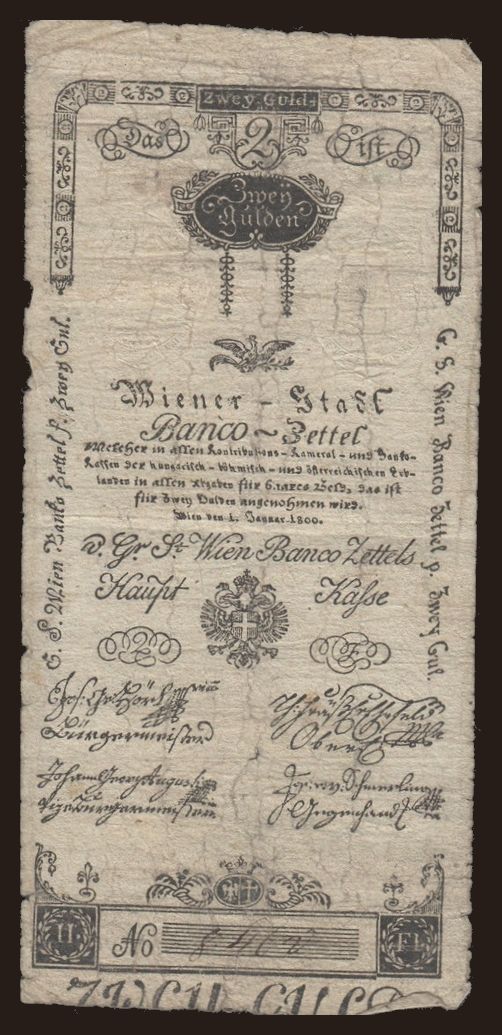 Zwey Guld.
Das 2 ist
Zweÿ
Gulden
Wiener - Stadt
Banco - Zettel
Welcher in allen Kontributions- Kameral- und Banko-
Kassen der hungarisch- böhmisch- und österreichischen Erb-
landen in allen Abgaben für baares Geld, das ist
für Zwey Gulden angenohmen wird.
Wien den 1. Januar 1800.
G. S. Wien Banko Zettel p. Zwey Gul.
G. S. Wien Banco Zettel p. Zwey Gul.
d. Gr. St. Wien Banco Zettels
Haupt Kasse
2 F
Bürgermeister
Johann Georg Augusti
Vizebürgermeister
Gegenhand
II. No Fl.
ZWEY GULD